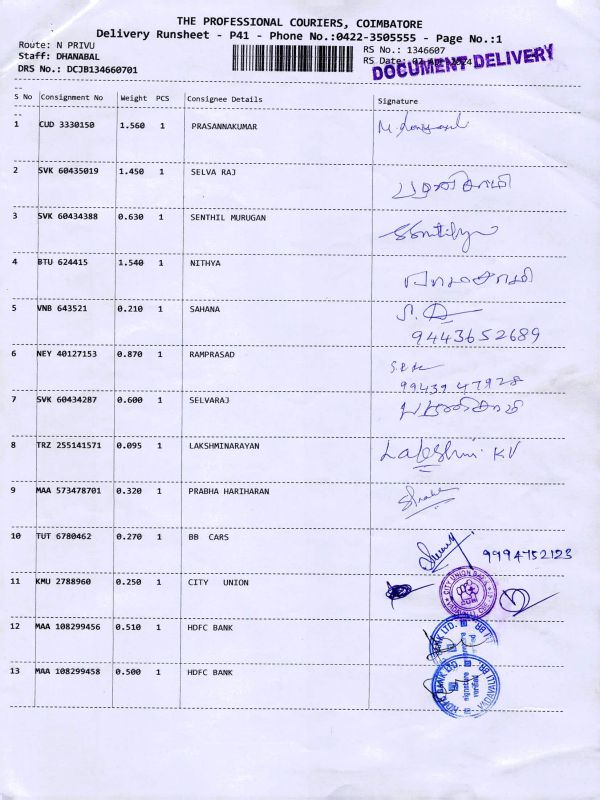 THE PROFESSIONAL COURIERS, COIMBATORE
Delivery Runsheet - P41 - Phone No.:0422-3505555 - Page No.:1
Route: N PRIVU
Staff: DHANABAL
DRS No.: DCJB134660701
RS No.: 1346607
RS Date: 02 Apr 2024
DOCUMENT DELIVERY
S No Consignment No Weight PCS Consignee Details Signature
1 CUD 3330150 1.560 1 PRASANNAKUMAR
2 SVK 60435019 1.450 1 SELVA RAJ பழனிசாமி
3 SVK 60434388 0.630 1 SENTHIL MURUGAN
4 BTU 624415 1.540 1 NITHYA
5 VNB 643521 0.210 1 SAHANA
9443652689
6 NEY 40127153 0.870 1 RAMPRASAD
99439 47928
7 SVK 60434287 0.600 1 SELVARAJ பழனிசாமி
8 TRZ 255141571 0.095 1 LAKSHMINARAYAN Lakshmi. KV
9 MAA 573478701 0.320 1 PRABHA HARIHARAN
10 TUT 6780462 0.270 1 BB CARS 9994752123
11 KMU 2788960 0.250 1 CITY UNION
CITY UNION
12 MAA 108299456 0.510 1 HDFC BANK
BANK LTD.
13 MAA 108299458 0.500 1 HDFC BANK
HDFC BANK LTD.
signature
verified